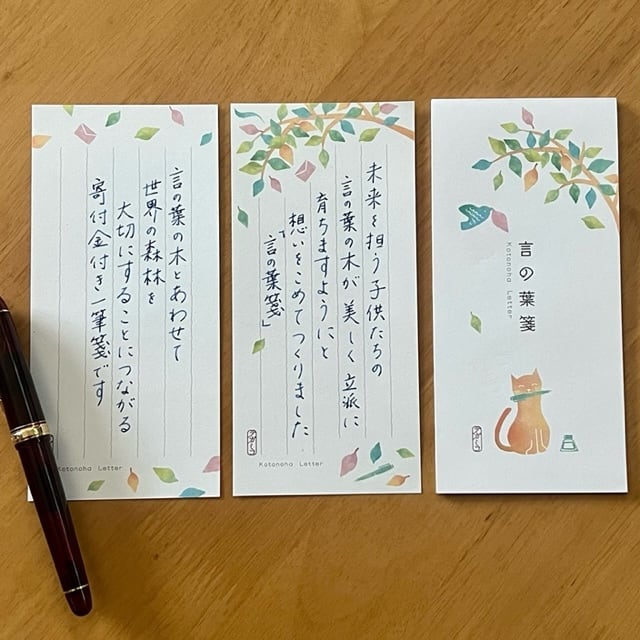 言の葉の木とあわせて
世界の森林を
大切にすることにつながる
寄付金付き一筆箋です
Kotonoha Letter
未来を担う子供たちの
言の葉の木が美しく立派に
育ちますようにと
想いをこめてつくりました
「言の葉箋」
Kotonoha Letter
言の葉箋
Kotonoha Letter